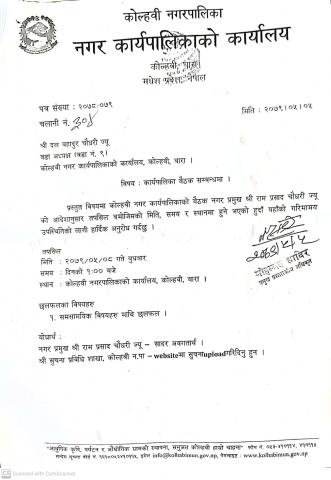 कोल्हवी नगरपालिका
नगर कार्यपालिकाको कार्यालय
कोल्हवी, बारा
मधेश प्रदेश, नेपाल
पत्र संख्या : २०७८-०७९
मिति : २०७९।०५।०५
चलानी नं. ३०४
श्री दल बहादुर चौधरी ज्यू
वडा अध्यक्ष (वडा नं. ९)
कोल्हवी नगरपालिकाको कार्यालय, कोल्हवी, बारा ।
विषय : कार्यपालिका बैठक सम्बन्धमा ।
प्रस्तुत विषयमा कोल्हवी नगरपालिकाको बैठक नगर प्रमुख श्री राम प्रसाद चौधरी ज्यू
को आदेशानुसार तपसिल बमोजिमको मिति, समय र स्थानमा हुने भएको हुदाँ यहाँको गरिमामय
उपस्थितिको लागी हार्दिक अनुरोध गर्दछु ।
तपसिल
मिति : २०७९/०५/०८ गते बुधबार
समय : दिनको १:०० बजे
स्थान : कोल्हवी नगरपालिकाको कार्यालय, कोल्हवी, बारा ।
प्रमुख प्रशासकीय अधिकृत
छलफलका बिषयहरु
१. समसामयिक बिषयहरु माथि छलफल ।
बोधार्थ :
नगर प्रमुख श्री राम प्रसाद चौधरी ज्यू – सादर अवगतार्थ ।
श्री सुचना प्रबिधि शाखा, कोल्हवी न.पा – websiteमा सुचनाuploadगरिदिनु हुन ।
"आधुनिक कृषि, पर्यटन र औधोगिक ग्रामको स्थापना, समुन्नत कोल्हवी हाम्रो चाहना"
इमेल info@kolhabimun.gov.np, वेबसाइट : www.kolhabimun.gov.np
Scanned with CamScanner